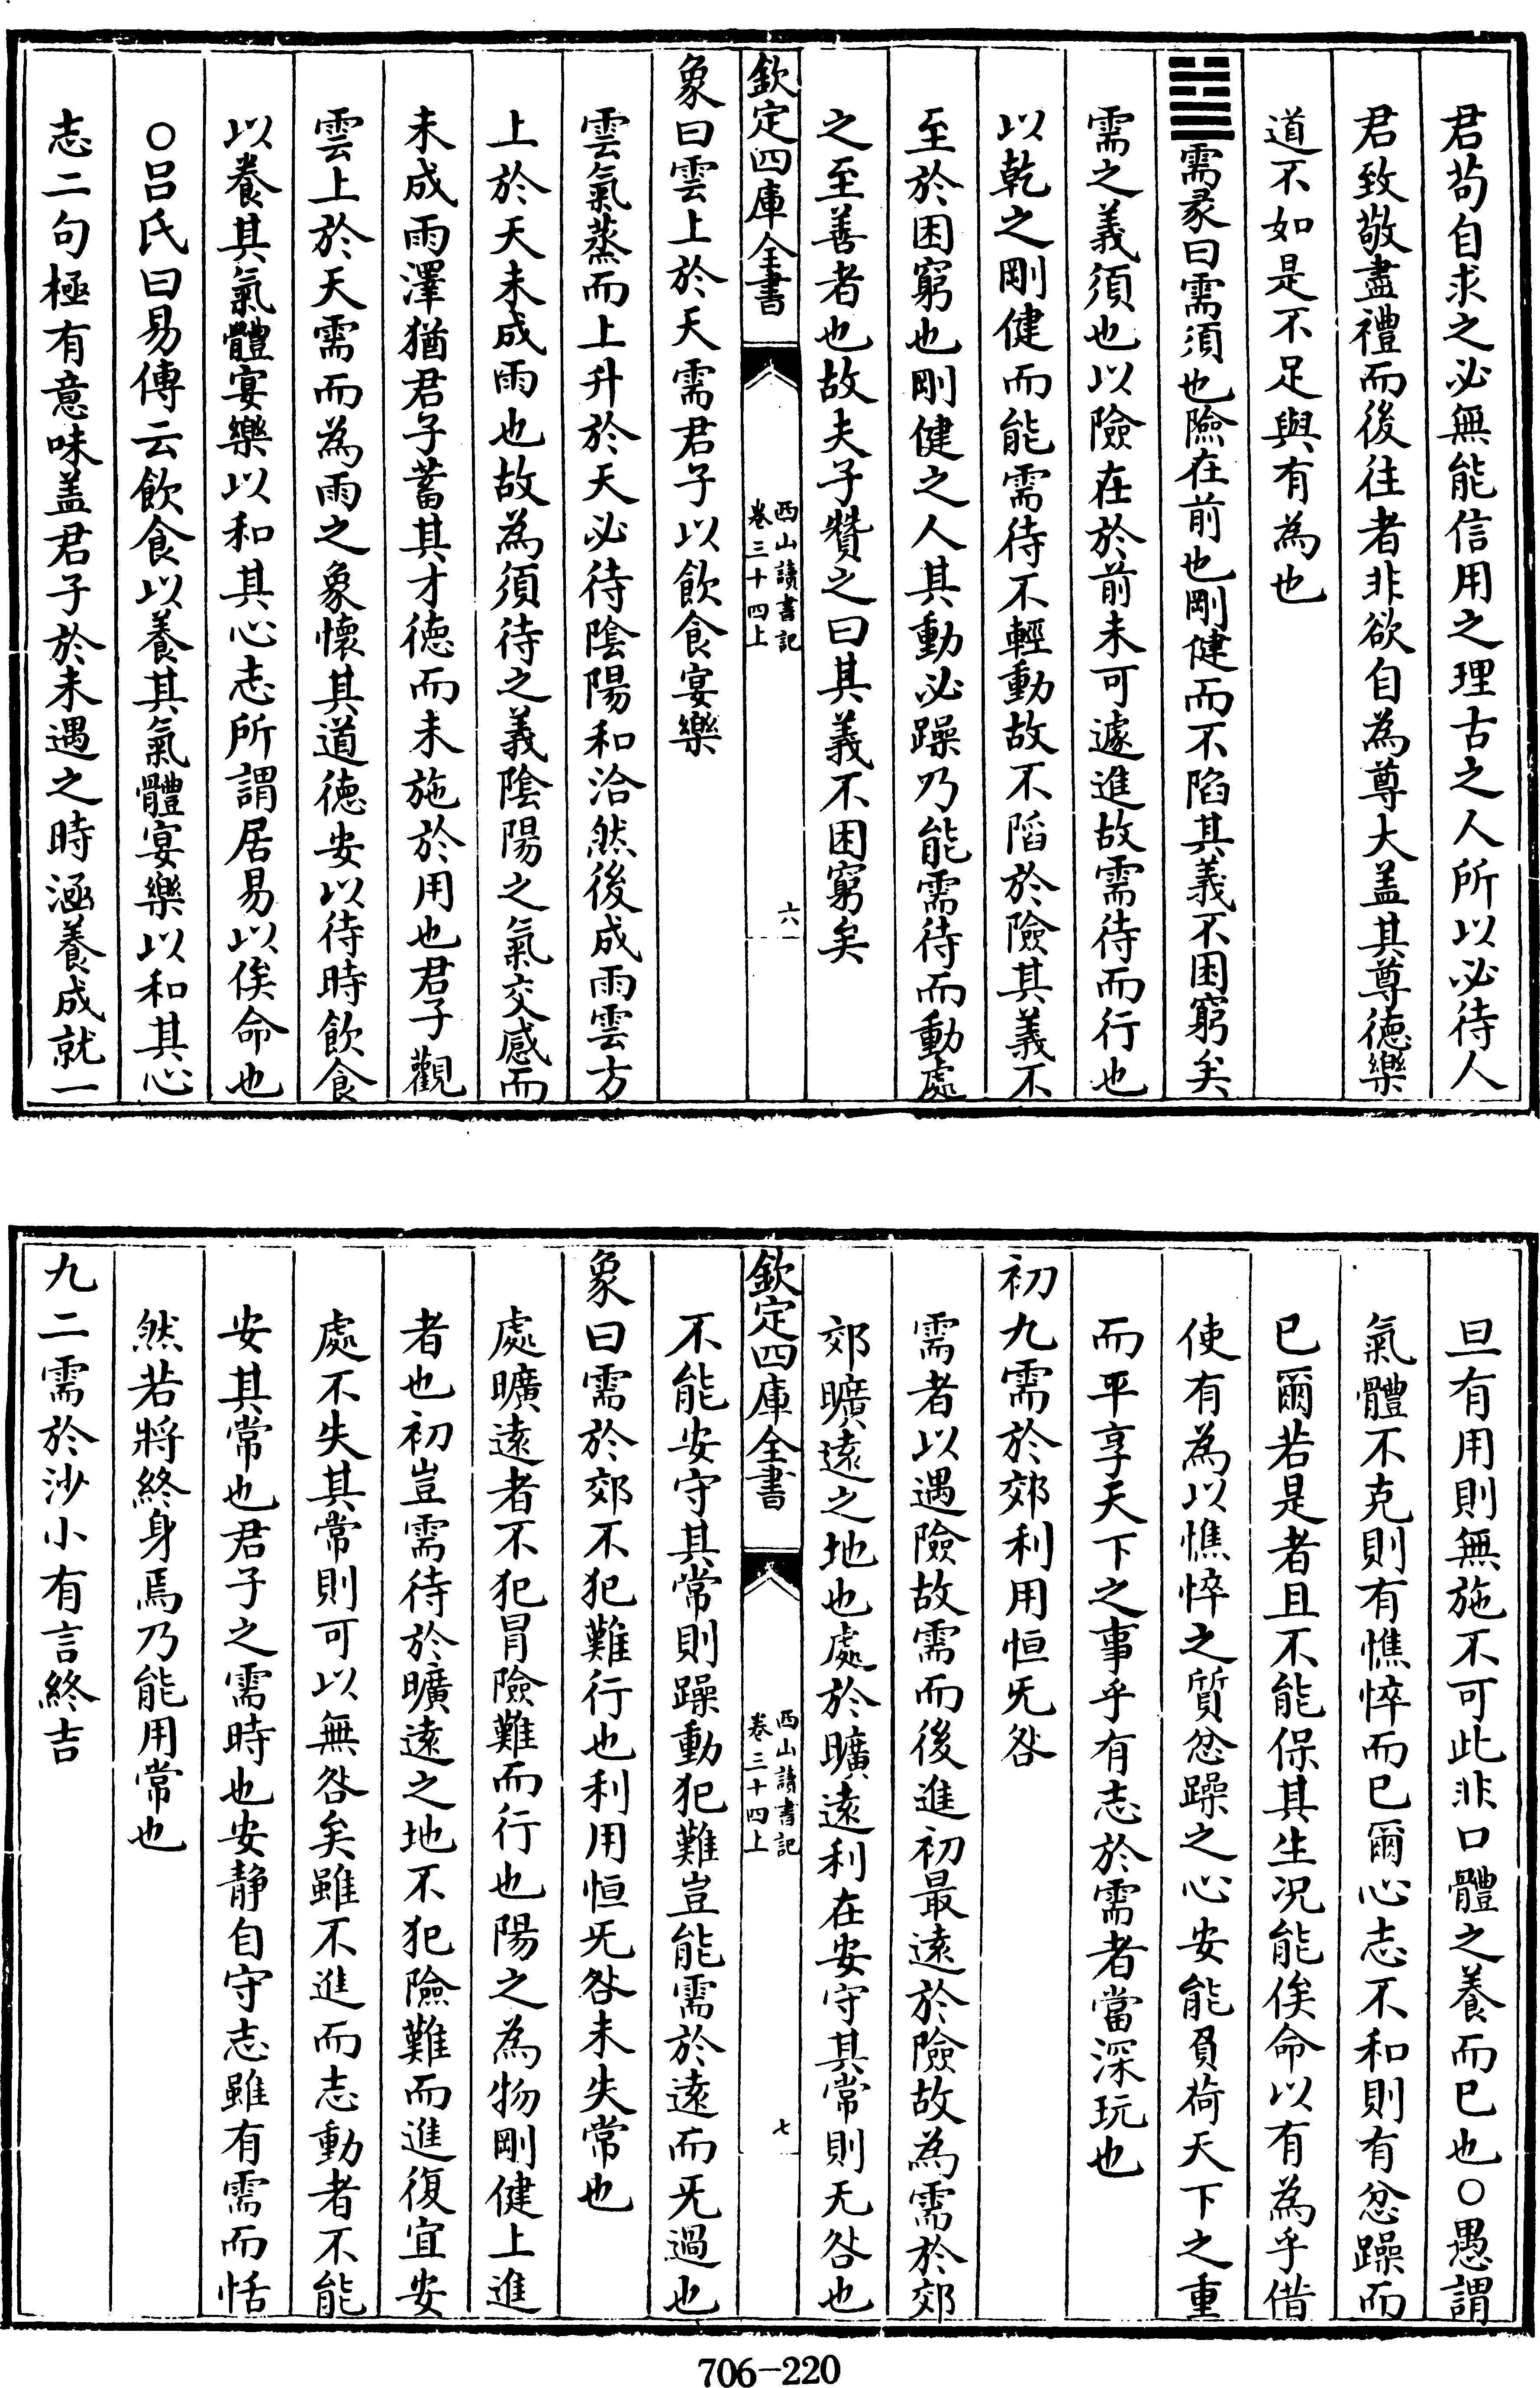 君苟自求之必無能信用之理古之人所以必待人
君致敬盡禮而後往者非欲自為尊大盖其尊徳樂
道不如是不足與有為也
䷄需彖曰需須也險在前也剛健而不陷其義不困窮矣
需之義須也以險在於前未可遽進故需待而行也
以乾之剛健而能需待不輕動故不陷於險其義不
至於困窮也剛健之人其動必躁乃能需待而動處
之至善者也故夫子贊之曰其義不困窮矣
欽定四庫全書
西山讀書記
卷三十四上
六
象曰雲上於天需君子以飲食宴樂
雲氣蒸而上升於天必待陰陽和洽然後成雨雲方
上於天未成雨也故為須待之義陰陽之氣交感而
未成雨澤猶君子蓄其才徳而未施於用也君子觀
雲上於天需而為雨之象懷其道徳安以待時飲食
以養其氣體宴樂以和其心志所謂居易以俟命也
○呂氏曰易傳云飲食以養其氣體宴樂以和其心
志二句極有意味盖君子於未遇之時涵養成就一
旦有用則無施不可此非口體之養而已也○愚謂
氣體不克則有憔悴而已爾心志不和則有忿躁而
已爾若是者且不能保其生况能俟命以有為乎借
使有為以憔悴之質忿躁之心安能負荷天下之重
而平享天下之事乎有志於需者當深玩也
初九需於郊利用恒旡咎
需者以遇險故需而後進初最逺於險故為需於郊
郊曠逺之地也處於曠逺利在安守其常則无咎也
欽定四庫全書
西山讀書記
卷三十四上
七
不能安守其常則躁動犯難豈能需於逺而旡過也
象曰需於郊不犯難行也利用恒旡咎未失常也
處曠逺者不犯冒險難而行也陽之為物剛健上進
者也初豈需待於曠逺之地不犯險難而進復宜安
處不失其常則可以無咎矣雖不進而志動者不能
安其常也君子之需時也安静自守志雖有需而恬
然若將終身焉乃能用常也
九二需於沙小有言終吉
706-220